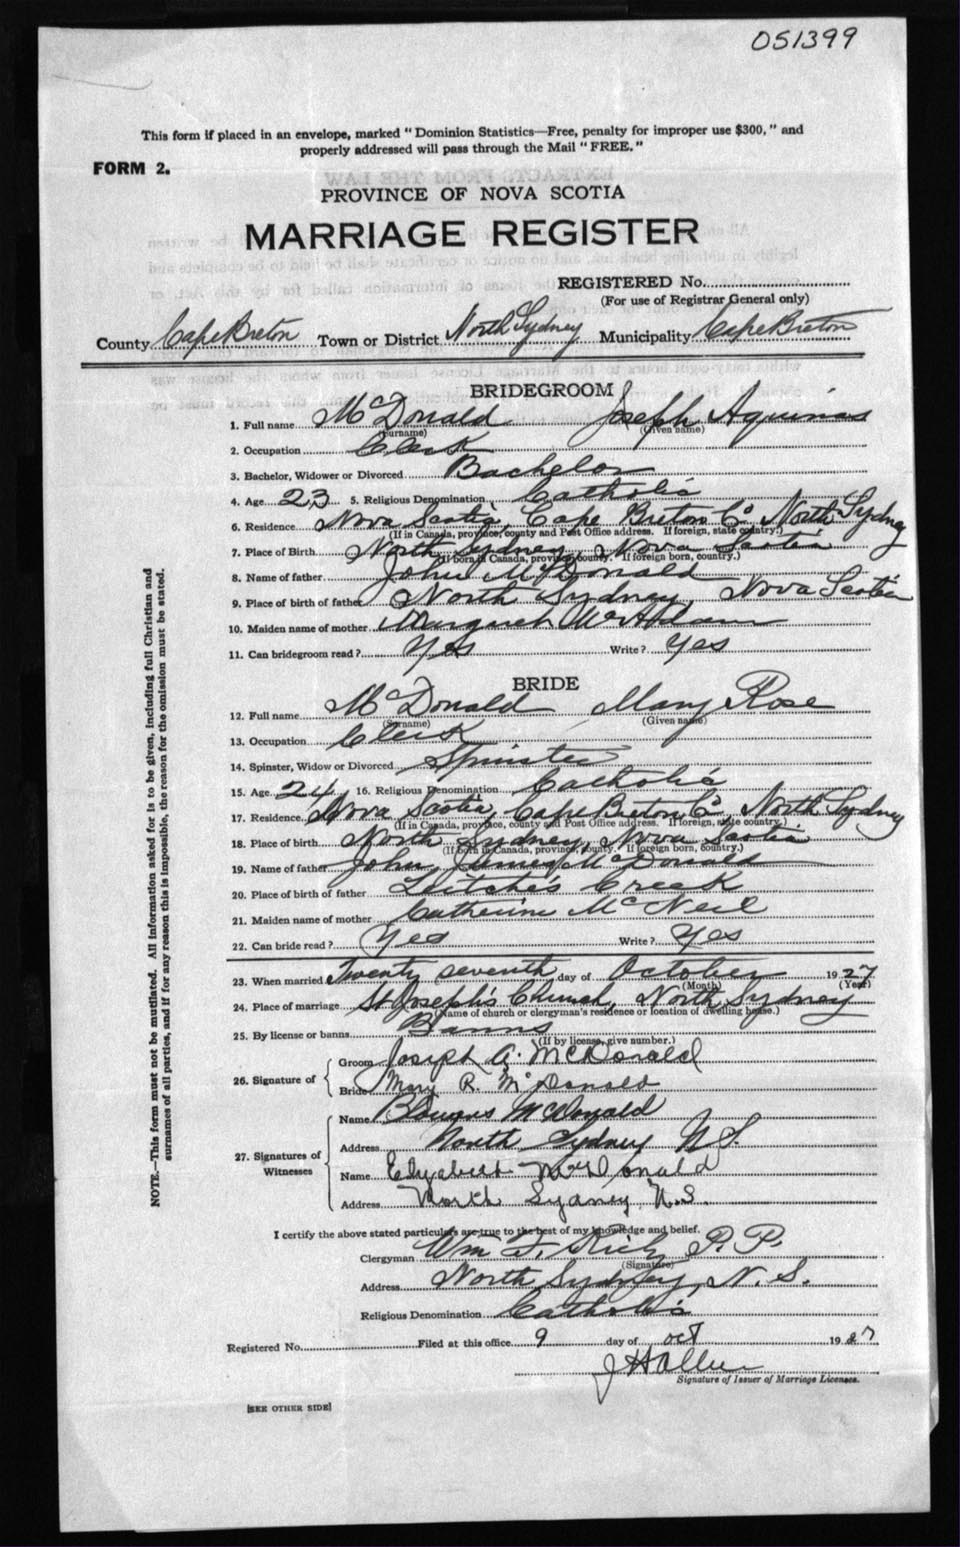 051399
This form if placed in an envelope, marked " Dominion Statistics—Free, penalty for improper use $300, " and
properly addressed will pass through the Mail " FREE. "
FORM 2.
PROVINCE OF NOVA SCOTIA
MARRIAGE REGISTER
REGISTERED No.
(For use of Registrar General only)
County Cape Breton Town or District North Sydney Municipality Cape Breton
BRIDEGROOM
1. Full name McDonald Joseph Aquinas
(Surname) (Given name)
2. Occupation Clerk
3. Bachelor, Widower or Divorced Bachelor
4. Age 23 5. Religious Denomination Catholic
6. Residence Nova Scotia, Cape Breton Co North Sydney
(If in Canada, province, county and Post Office address. If foreign, state country.)
7. Place of Birth North Sydney, Nova Scotia
(If born in Canada, province, county. If foreign born, country.)
8. Name of father John McDonald
9. Place of birth of father North Sydney, Nova Scotia
10. Maiden name of mother Margaret McAdam
11. Can bridegroom read? Yes Write? Yes
BRIDE
12. Full name McDonald Mary Rose
(Surname) (Given name)
13. Occupation Clerk
14. Spinster, Widow or Divorced Spinster
15. Age 24 16. Religious Denomination Catholic
17. Residence Nova Scotia, Cape Breton Co North Sydney
(If in Canada, province, county and Post Office address. If foreign, state country.)
18. Place of birth North Sydney, Nova Scotia
(If born in Canada, province, county. If foreign born, country.)
19. Name of father John James McDonald
20. Place of birth of father Leitche's Creek
21. Maiden name of mother Catherine McNeil
22. Can bride read? Yes Write? Yes
23. When married Twenty seventh day of October 1927
(Month) (Year)
24. Place of marriage St Joseph's Church, North Sydney
(Name of church or clergyman's residence or location of dwelling house.)
25. By license or banns Banns
(If by license, give number.)
26. Signature of
Groom Joseph A. McDonald
Bride Mary R. McDonald
27. Signatures of Witnesses
Name McDonald
Address North Sydney N.S.
Name McDonald
Address North Sydney N.S.
I certify the above stated particulars are true to the best of my knowledge and belief.
Clergyman Wm F. P.P.
(Signature)
Address North Sydney, N. S.
Religious Denomination Catholic
Registered No. Filed at this office 9 day of Oct 1927
Signature of Issuer of Marriage Licenses.
[SEE OTHER SIDE]
NOTE.—This form must not be mutilated. All information asked for is to be given, including full Christian and
surnames of all parties, and if for any reason this is impossible, the reason for the omission must be stated.